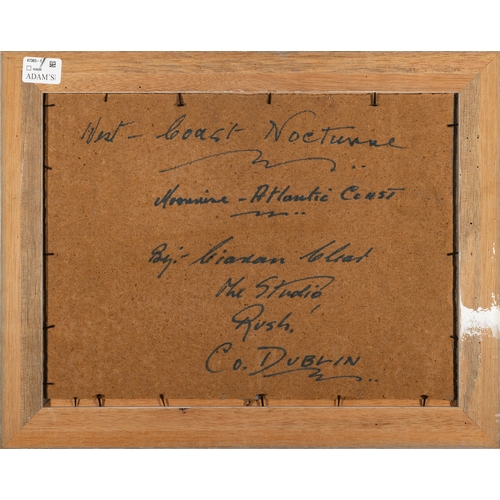 ADAM'S
West - Coast Nocturne
Moonrise - Atlantic Coast
By:- Ciaran Clear
The Studio,
Rush,
Co. DUBLIN